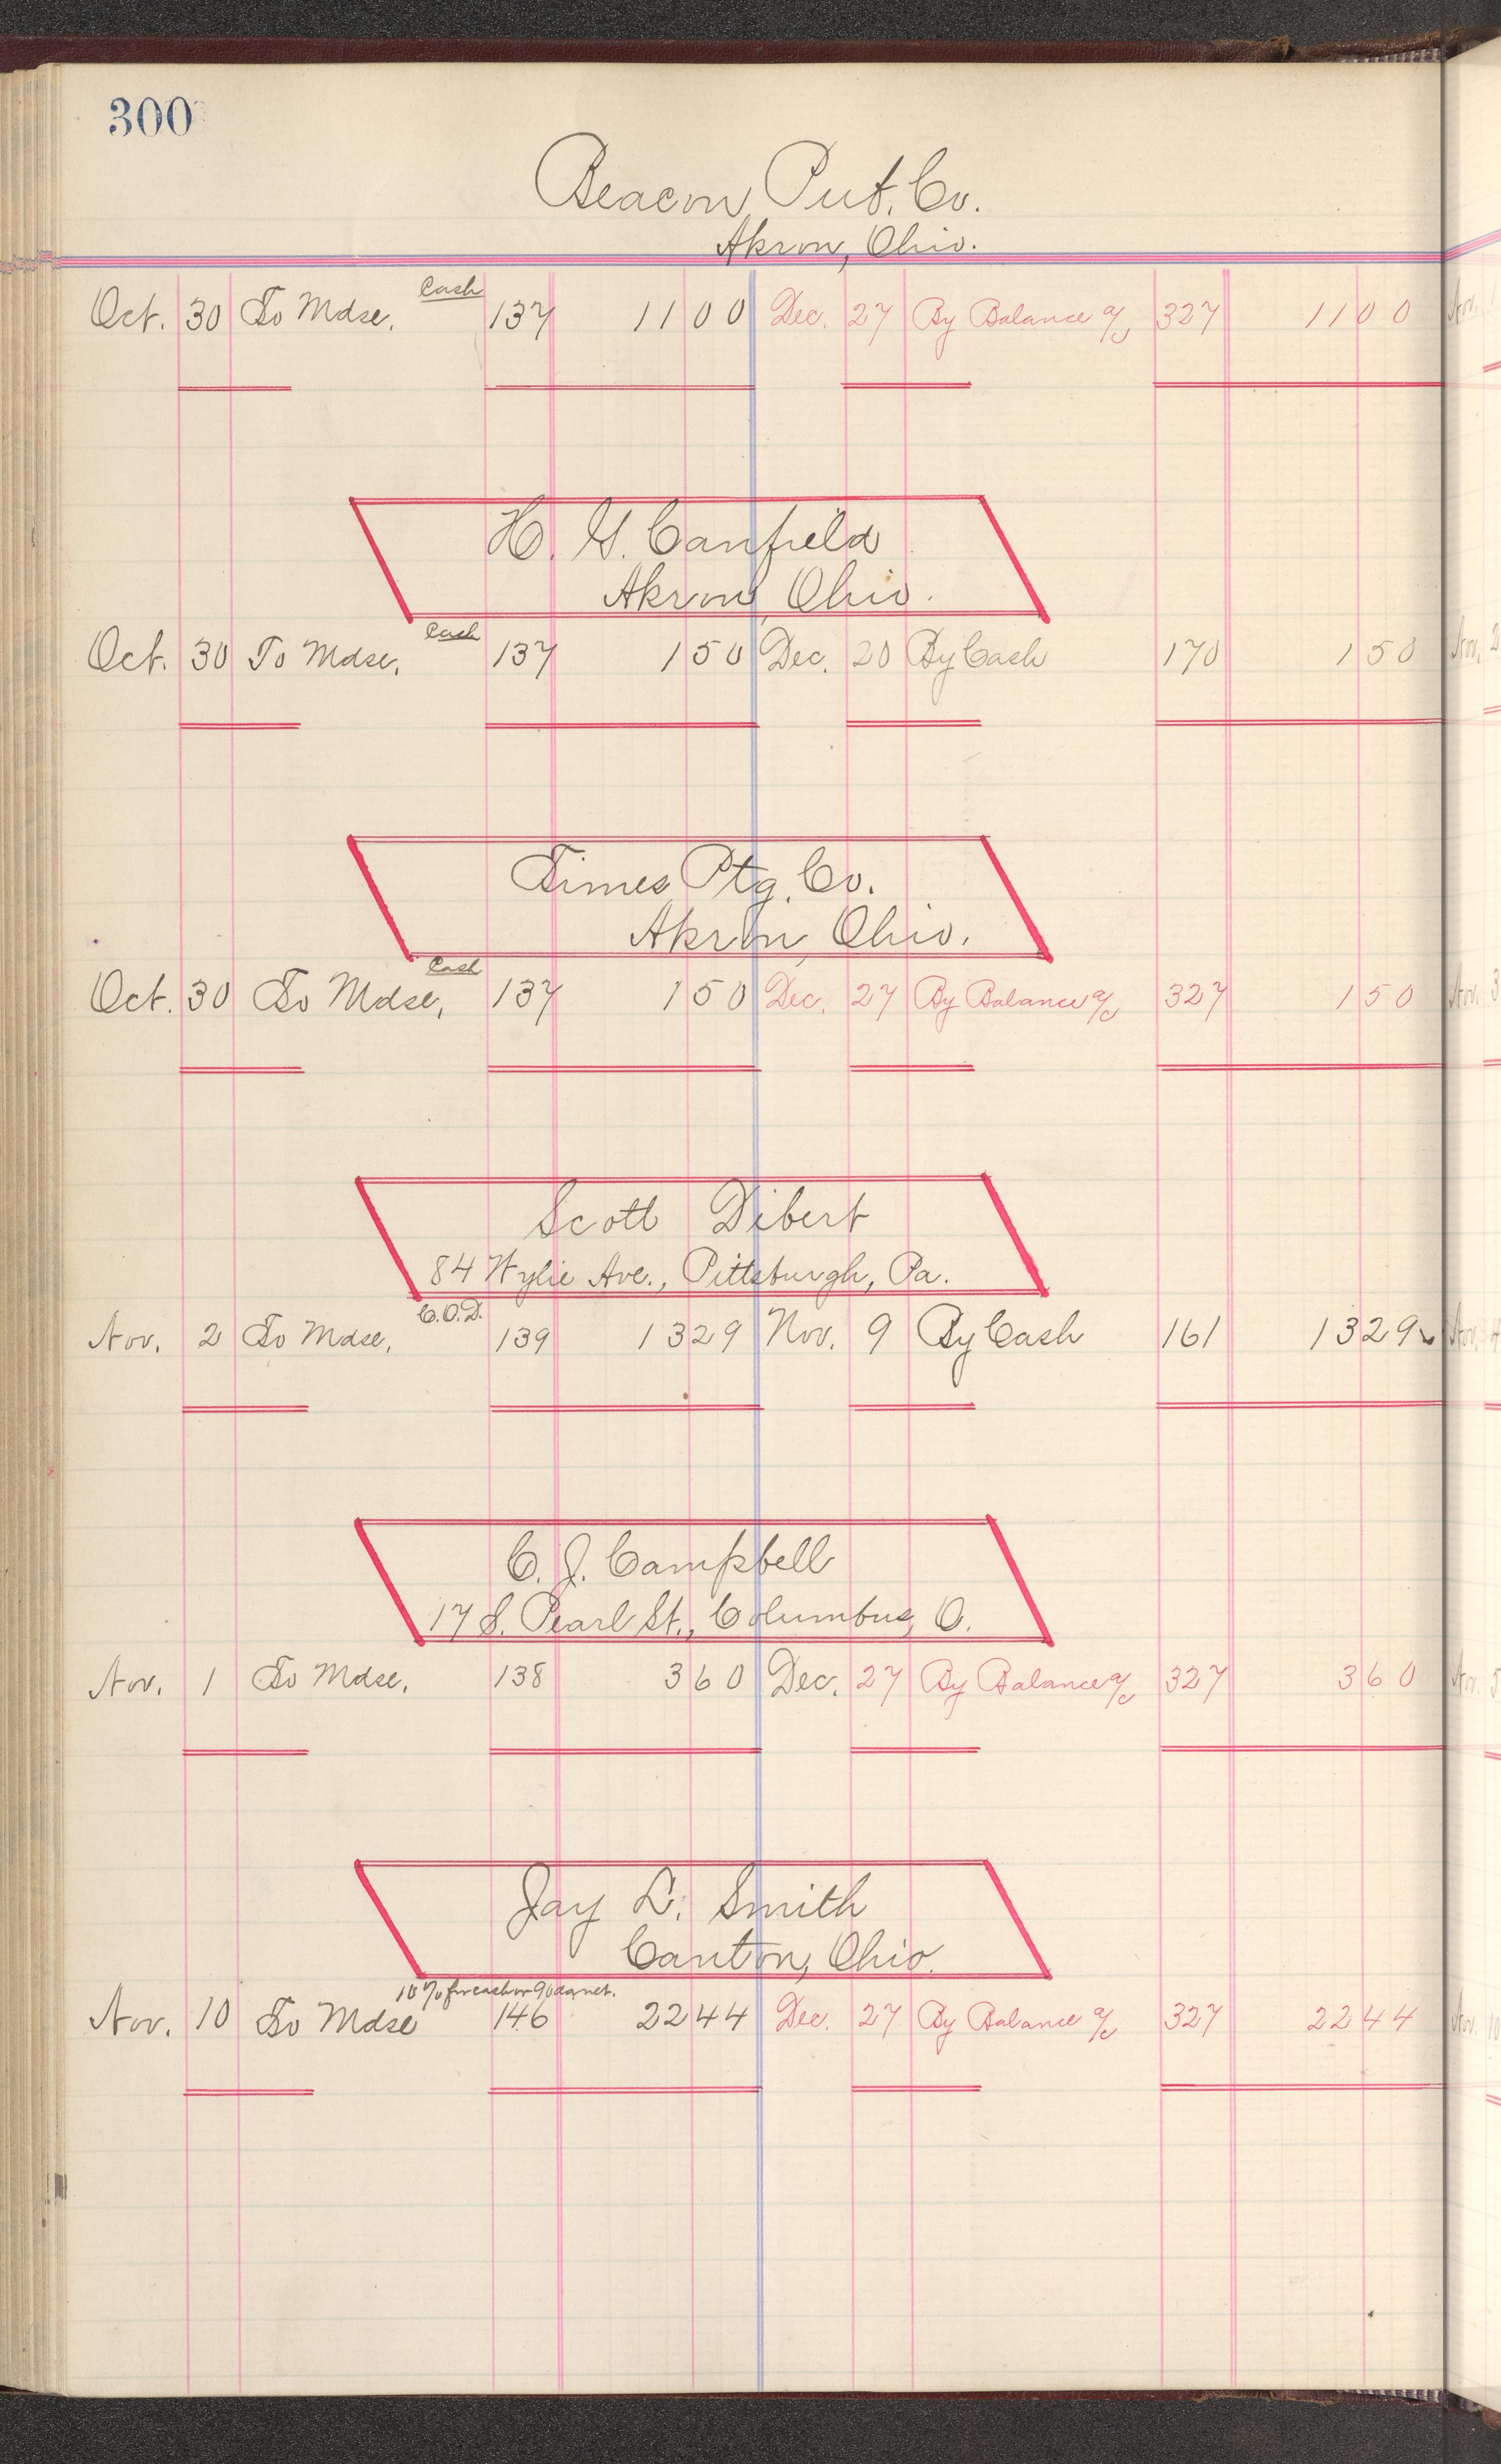 300
Beacon Pub. Co.
Akron, Ohio.
Cash
Oct. 30 To Mdse. 137 11 00 Dec. 27 By Balance a/c 327 11 00
H. G. Canfield
Akron, Ohio.
Cash
Oct. 30 To Mdse. 137 1 50 Dec. 20 By Cash 170 1 50
Times Ptg. Co.
Akron, Ohio.
Cash
Oct. 30 To Mdse. 137 1 50 Dec. 27 By Balance a/c 327 1 50
Scott Dibert
84 Wylie Ave., Pittsburgh, Pa.
C.O.D.
Nov. 2 To Mdse. 139 13 29 Nov. 9 By Cash 161 13 29
C. J. Campbell
17 S. Pearl St., Columbus, O.
Nov. 1 To Mdse. 138 3 60 Dec. 27 By Balance a/c 327 3 60
Jay L. Smith
Canton, Ohio.
10% for cash or 90 da net.
Nov. 10 To Mdse 146 22 44 Dec. 27 By Balance a/c 327 22 44